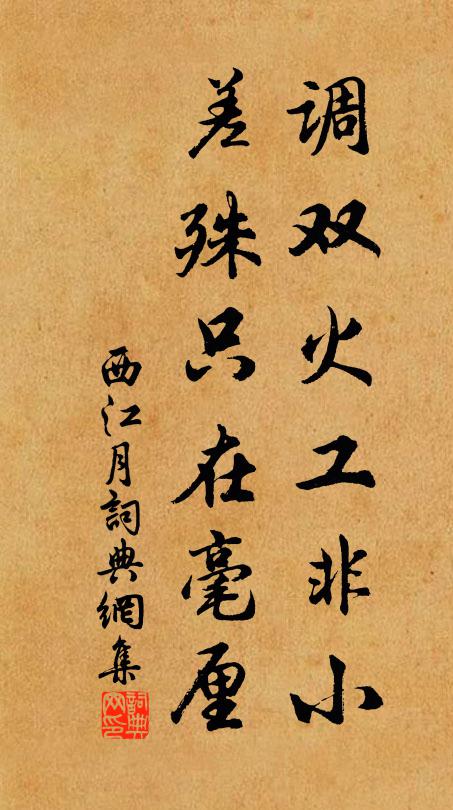 调双火工非小
差殊只在毫厘
西江月詞典網集
詞典网印